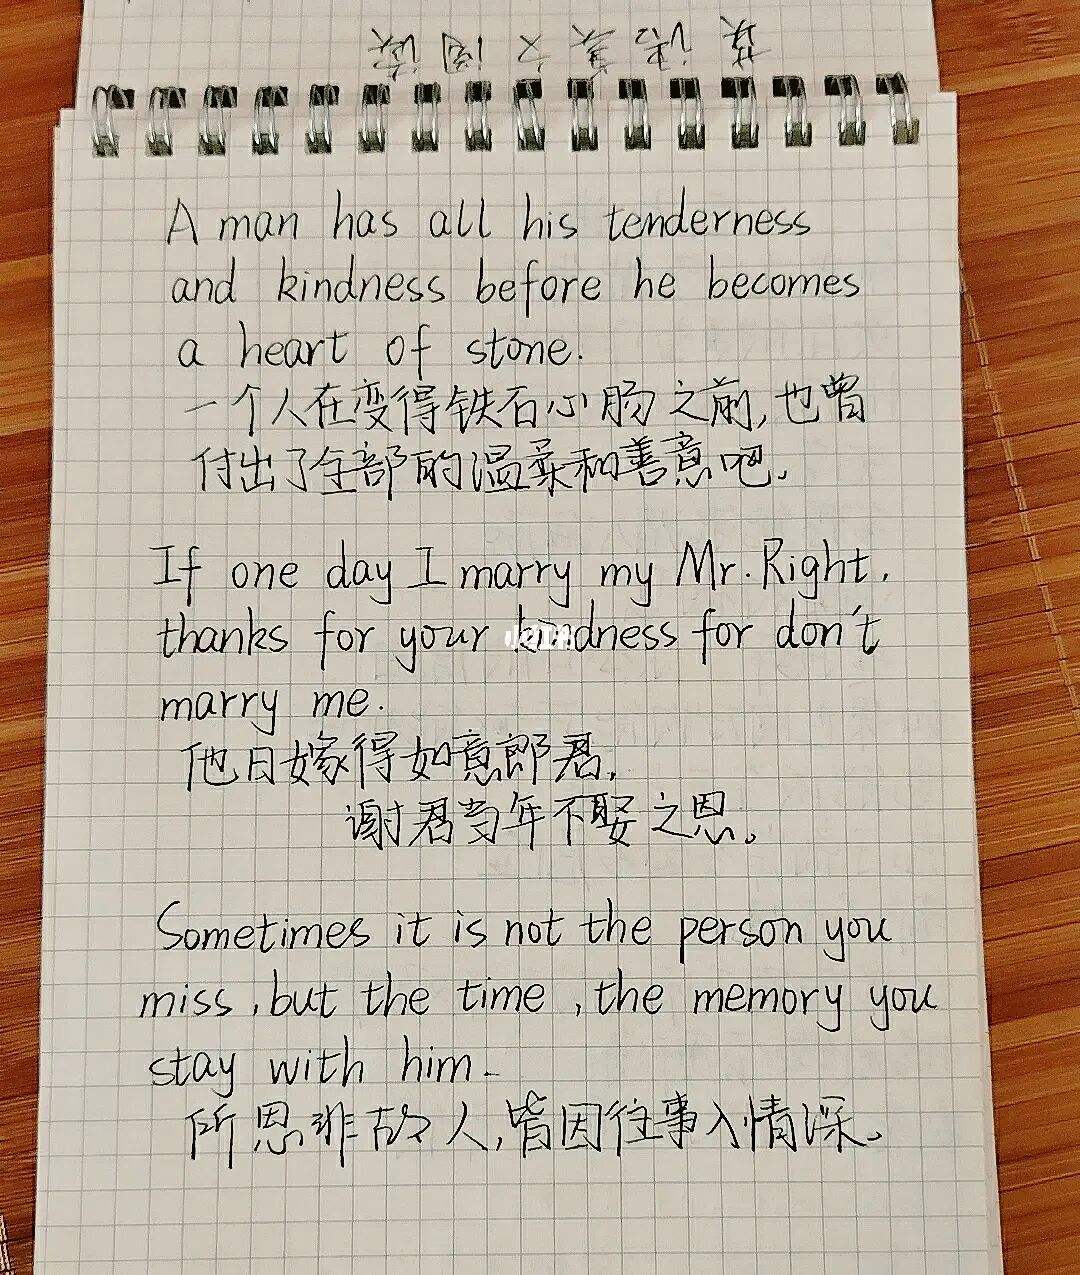 英语美文阅读
A man has all his tenderness
and kindness before he becomes
a heart of stone.
一个人在变得铁石心肠之前,也曾
付出了全部的温柔和善意吧.
If one day I marry my Mr. Right,
thanks for your kindness for don't
marry me.
他日嫁得如意郎君,
谢君当年不娶之恩。
Sometimes it is not the person you
miss, but the time, the memory you
stay with him.
所思非故人,皆因往事入情深。
小红书